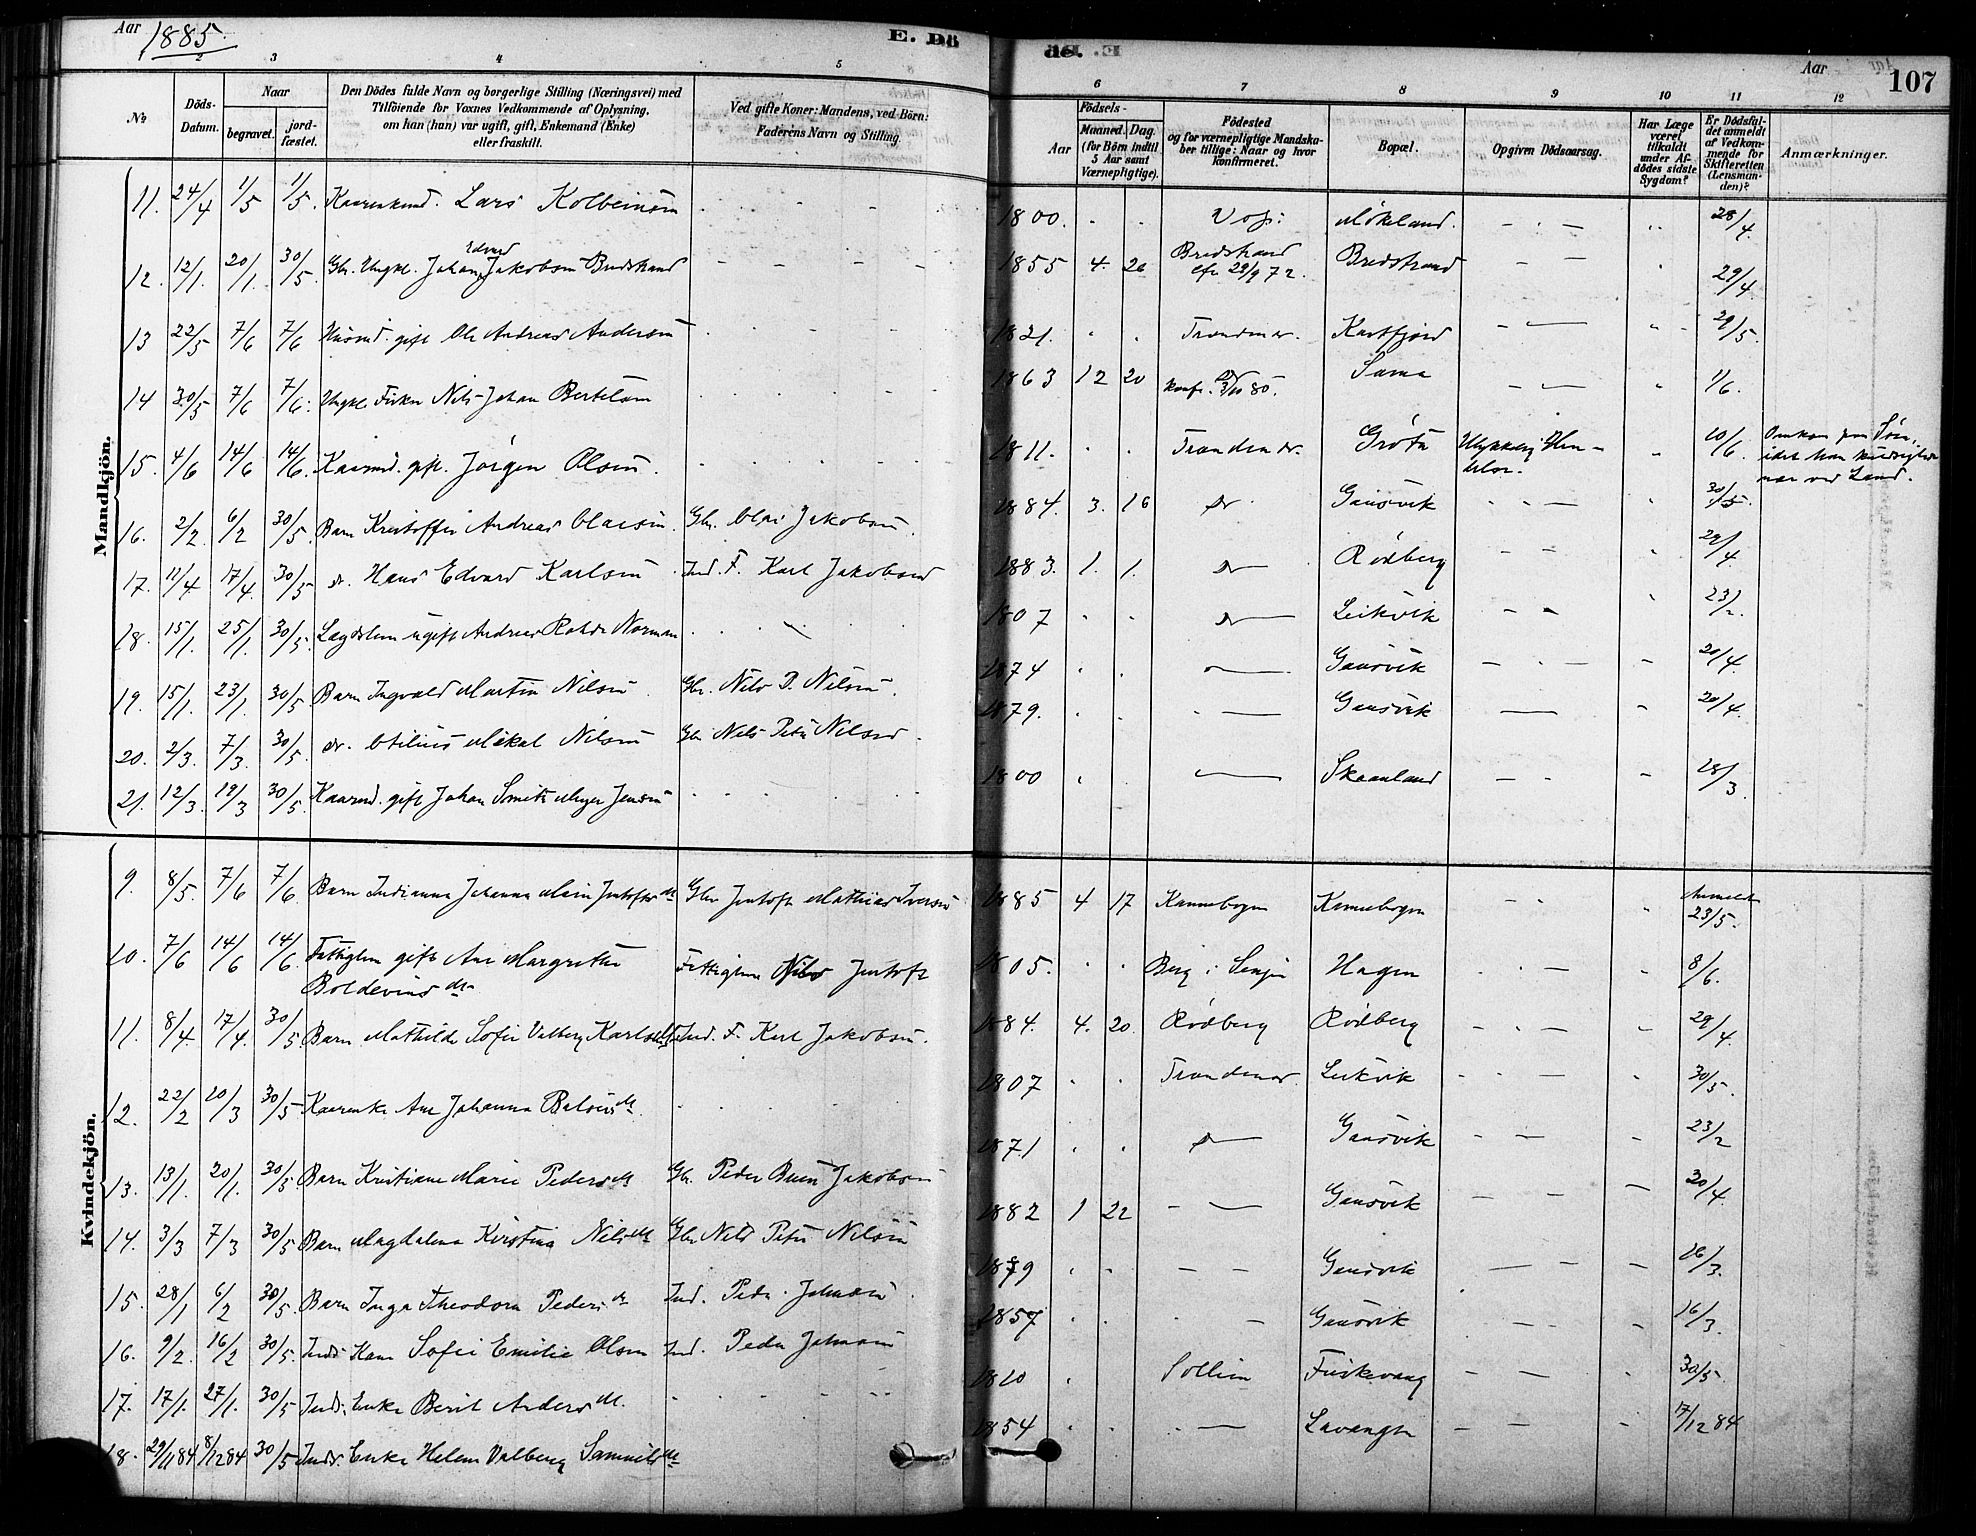 Aar 1885.
E. Dö
de. E.
Aar
107
2 3 4 5 6 7 8 9 10 11 12
№
Döds-Datum.
Naar
begravet.
jordfæstet.
Den Dödes fulde Navn og borgerlige Stilling (Næringsvei) med
Tilföiende for Voxnes Vedkommende af Oplysning,
om han (hun) var ugift, gift, Enkemand (Enke)
eller fraskilt.
Ved gifte Koner: Mandens, ved Börn:
Faderens Navn og Stilling.
Födsels-
Aar
Maaned. Dag.
(for Börn indtil
5 Aar samt
Værnepligtige).
Födested
og for værnepligtige Mandskaber tillige: Naar og hvor
konfirmeret.
Bopæl.
Opgiven Dödsaarsag.
Har Læge
været
tilkaldt
under Afdödes sidste
Sygdom?
Er Dödsfaldet anmeldt
af Vedkommende for
Skifteretten
(Lensmanden)?
Anmærkninger.
Mandkjön.
11. 24/4 1/5 1/5. Lars Kolbeinsen 1800. Vos: Mökeland. 28/4.
12. 12/1. 20/1. 30/5 Gbr. Ungkl. Johan Edvard Jakobsen Bredstrand 1855 4. 26 Bredstrand 29/9 72. Bredstrand 29/4.
13 22/5 7/6 7/6 Husmd. gift Ole Andreas Andersen 1821. Trondenes. Kastfjord 29/5.
14 30/5 7/6 7/6. Ungkl. Fisker Nils Johan Bertelsen 1863 12 20 konf. 3/10 80. Sama 1/6.
15. 4/6 14/6 14/6. Kaarmd. gift. Jörgen Olsen. 1811. Trondenes. Gröta 10/6.
16. 2/2. 6/2 30/5. Barn Kristoffer Andreas Olaisen. Gbr. Olai Jakobsen. 1884. 3. 16 dr Gausvik 30/5.
17. 11/4 17/4. 30/5 dr. Hans Edvard Karlsen Ind. F. Karl Jakobsen 1883. 1. 1. dr Rödberg 29/4
18. 15/1. 25/1. 30/5. Lægdslem ugift Andreas Rohde Norman 1807 dr Leikvik 23/2.
19. 15/1. 23/1. 30/5 Barn Ingvald Martin Nilsen Gbr. Nils P. Nilsen. 1874 Gausvik 20/4
20. 2/3. 7/3. 30/5. dr. Mikal Nilsen Gbr Nils Peter Nilsen. 1879. Gausvik 20/4.
21. 12/3. 19/3 30/5. Kaarmd. gift Johan Smith Meyer Jensen 1800 Skaanland 28/3.
Kvindekjön.
9. 8/5. 7/6 7/6. Barn Indianna Johanna Marie Gbr Jentoft Mathias Iversen 1885 4 17 Kannebogen Kannebogen Anmeldt 23/5.
10. 7/6 14/6 14/6. Fattiglem gift Ane Margrethe Boldevinsdr. Fattiglem Nils Jentoft 1805. Berg i Senjen Hagen 8/6.
11. 8/4. 17/4. 30/5. Barn Mathilde Sofie Valborg Ind. F. Karl Jakobsen. 1884. 4. 20. Rödberg Rödberg 29/4.
12. 22/2 20/3 30/5 Kaarenke Ane Johanna 1807 Trondenes Leikvik 30/5.
13. 13/1. 20/1. 30/5 Barn Kristiane Marie Pedersdr Gbr. Peder Jakobsen 1871 dr Gausvik 23/2
14. 3/3 7/3 30/5. Barn Magdalena Kirstina Nilsdr Gbr Nils Peter Nilsen 1882 1 22 Gausvik 20/4.
15. 28/1 6/2 30/5. Barn Inga Theodora Pedersdr Ind. Peder Johnsen. 1879 Gausvik 16/3.
16. 9/2. 16/2 30/5. Inds: Kone Sofie Emilie Olsen Ind. Peder Johnsen 1857 Gausvik 16/3.
17. 17/1. 27/1. 30/5 Inds: Enke Berit Andersdr. 1810 Sollien Fuskevaag 30/5.
18. 29/11 84 8/12 84 30/5 Inds. Enke Helene Valberg Samuelsdr 1854 Lavangen 17/12 84